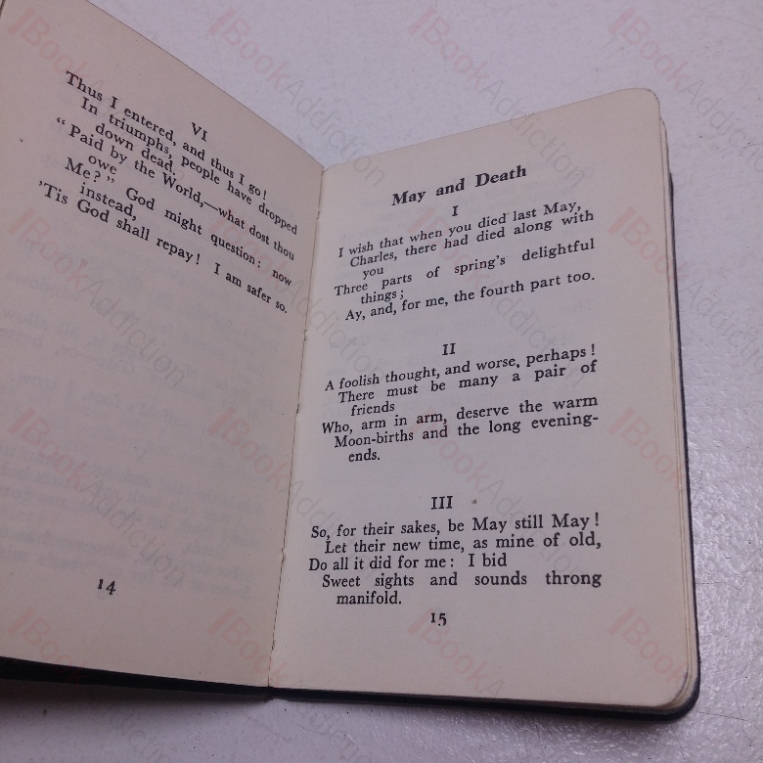 VI
Thus I entered, and thus I go!
In triumphs, people have dropped
down dead.
“Paid by the World,—what dost thou
owe
Me?” God might question: now
instead,
'Tis God shall repay! I am safer so.
14
May and Death
I
I wish that when you died last May,
Charles, there had died along with
you
Three parts of spring's delightful
things;
Ay, and, for me, the fourth part too.
II
A foolish thought, and worse, perhaps!
There must be many a pair of
friends
Who, arm in arm, deserve the warm
Moon-births and the long evening-
ends.
III
So, for their sakes, be May still May!
Let their new time, as mine of old,
Do all it did for me: I bid
Sweet sights and sounds throng
manifold.
15
BookAddiction